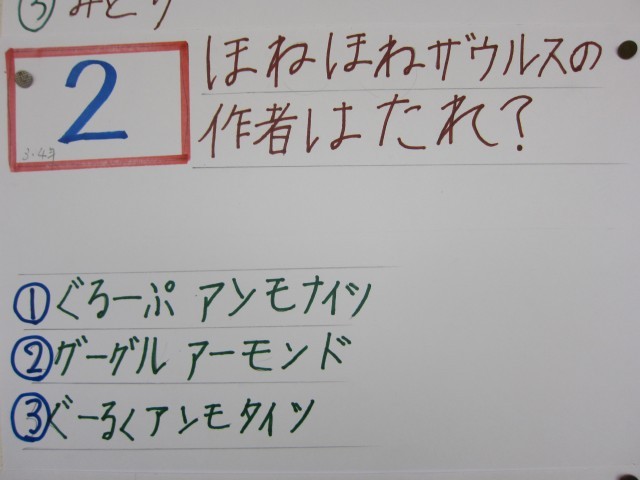 ③みどり
2
3.4才
ほねほねザウルスの
作者はたれ?
①ぐるーぷ アンモナイツ
②グーグル アーモンド
③ぐーるくアンモタイツ